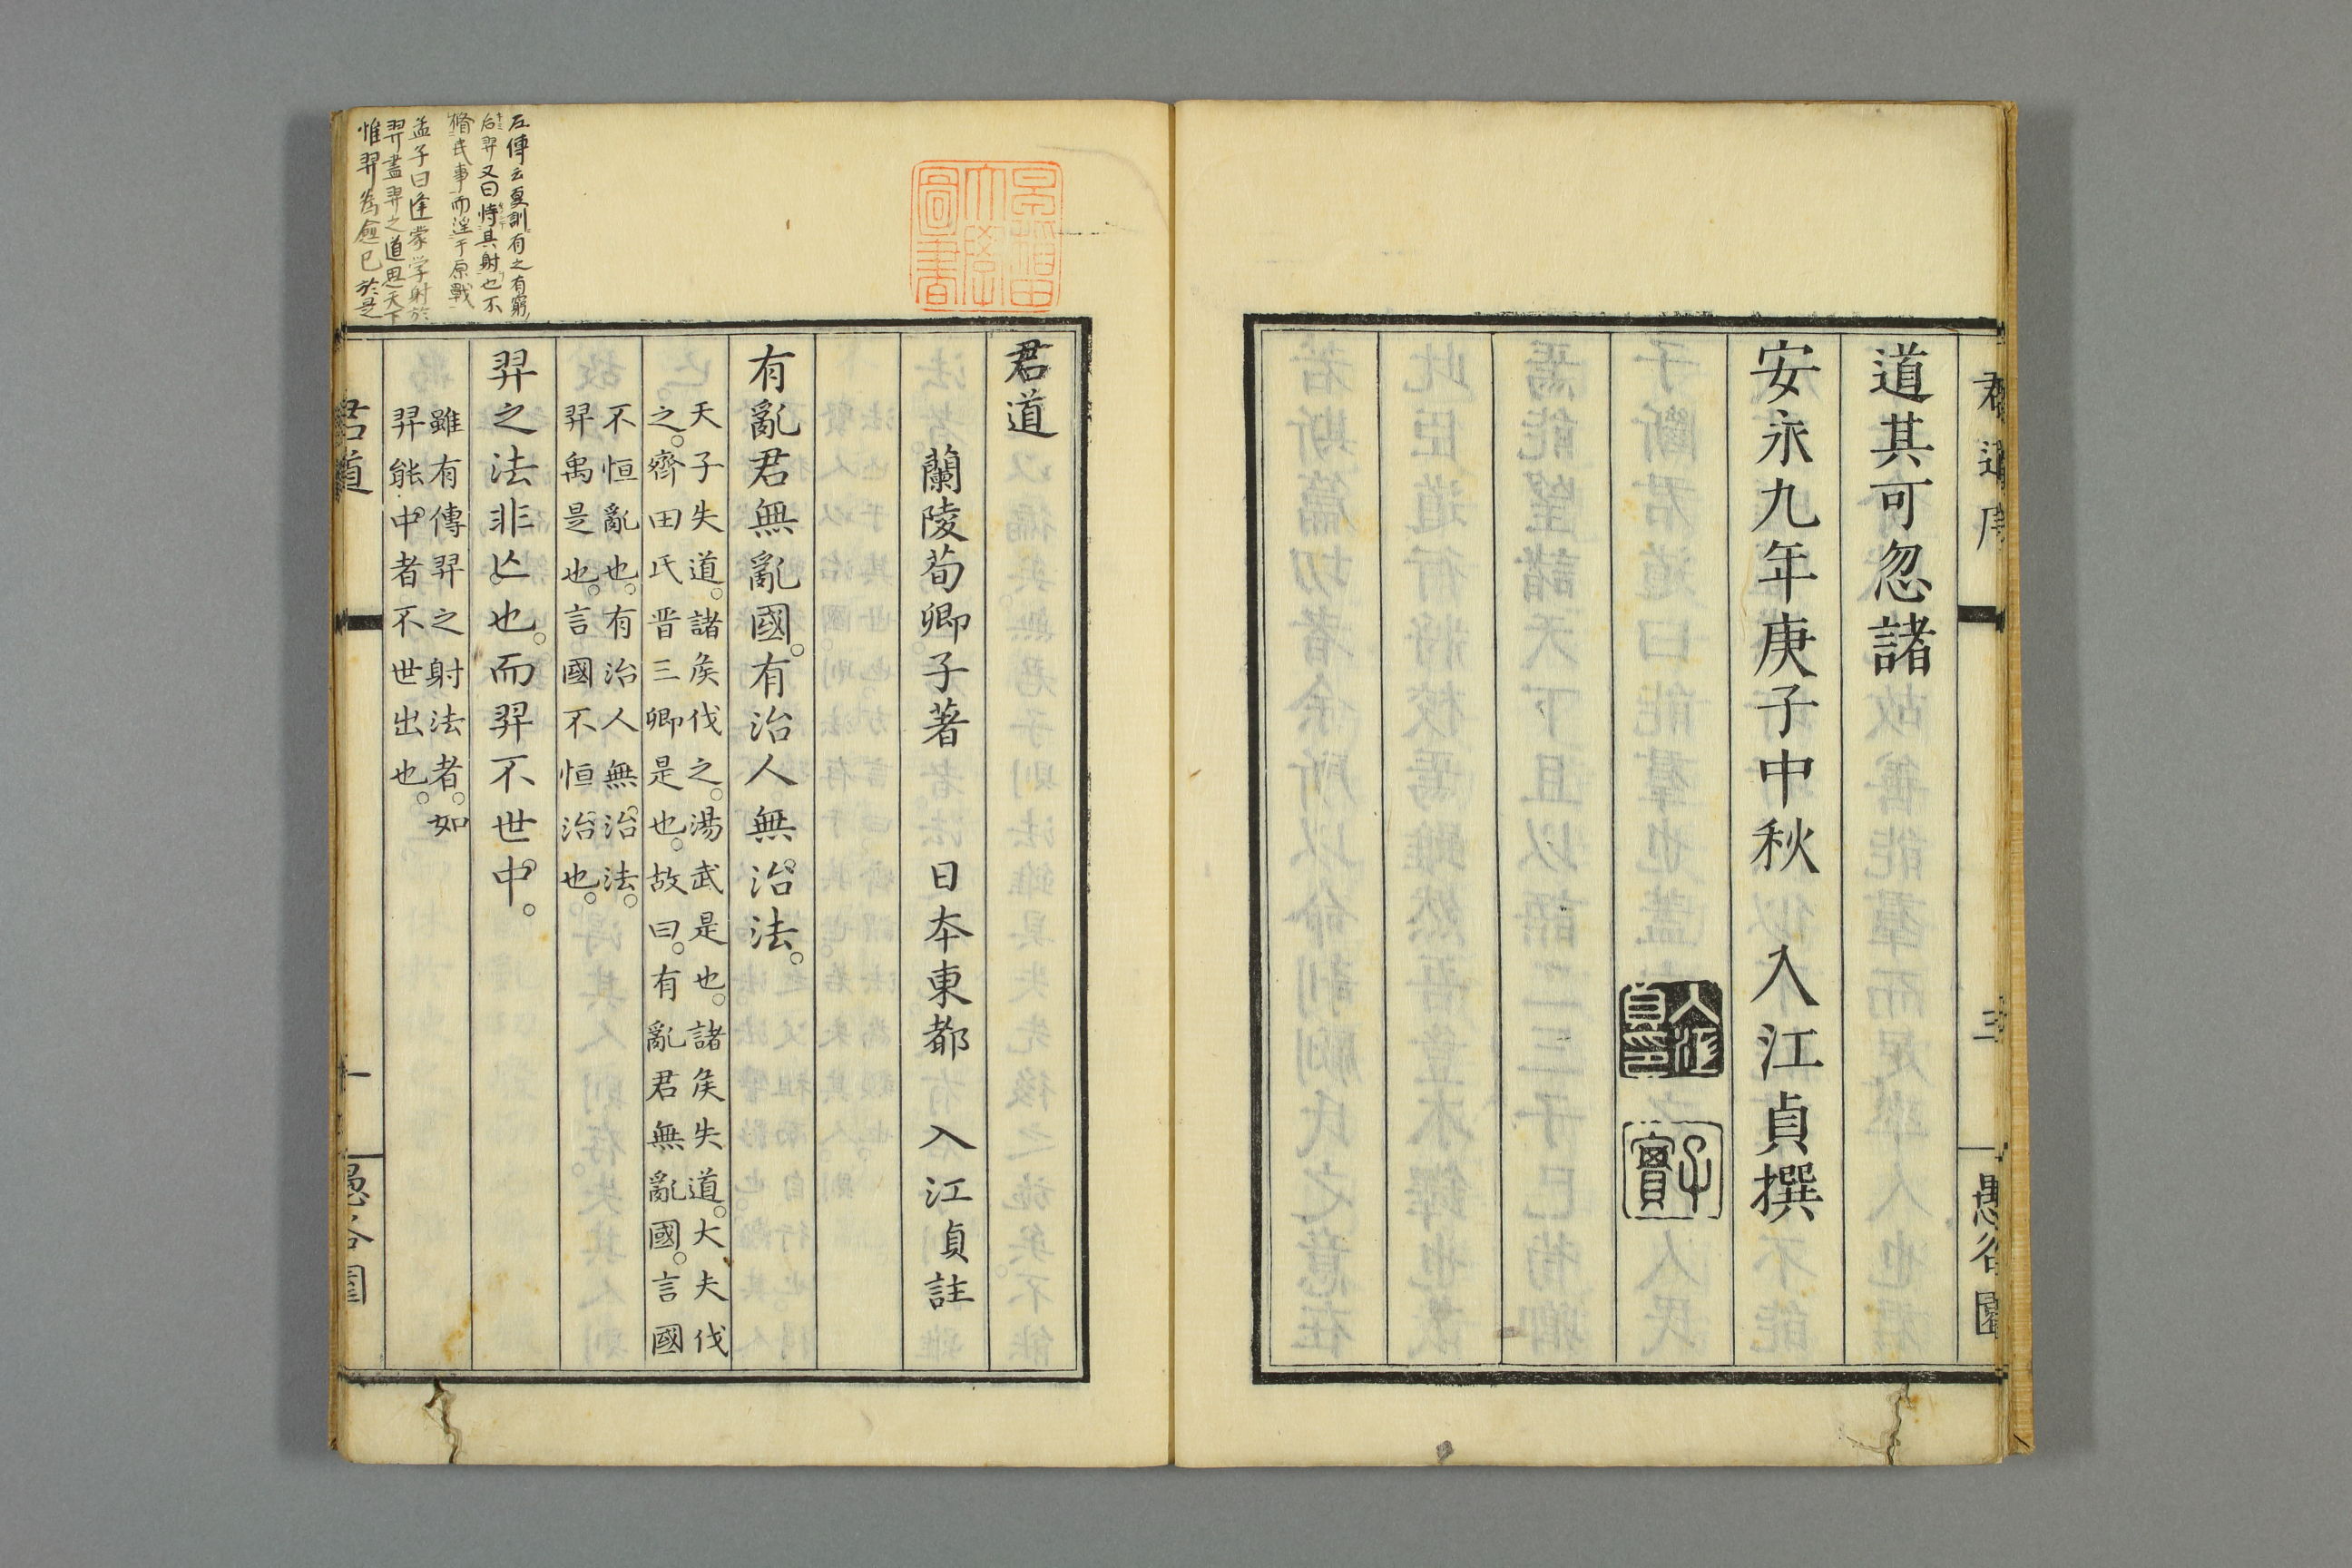 君道序
三
愚谷園
道其可忽諸
安永九年庚子中秋　入江貞撰
子實
早稲田
大學
圖書
君道
蘭陵荀卿子著　日本東都　入江貞註
有亂君無亂國。有治人無治法。
天子失道。諸侯伐之。湯武是也。諸侯失道。大夫伐
之。齊田氏晉三卿是也。故曰。有亂君無亂國。言國
不恒亂也。有治人無治法。
羿禹是也。言國不恒治也。
羿之法非亡也。而羿不世中。
雖有傳羿之射法者。如
羿能中者不世出也。
左傳云夏訓有之有窮
后羿又曰恃其射也不
脩民事而淫于原獸
孟子曰逢蒙学射於
羿盡羿之道思天下
惟羿為愈已於是
君道
一
愚谷園